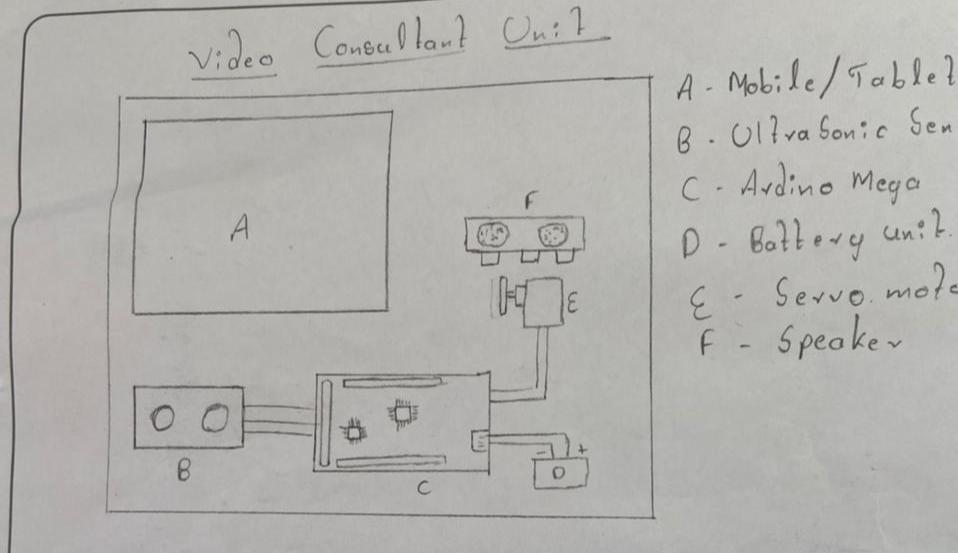 Video Consultant Unit
A - Mobile/Tablet
B - Ultrasonic Sen
C - Ardino Mega
D - Battery unit.
E - Servo. moto
F - Speaker
A
F
E
B
C
- +
D